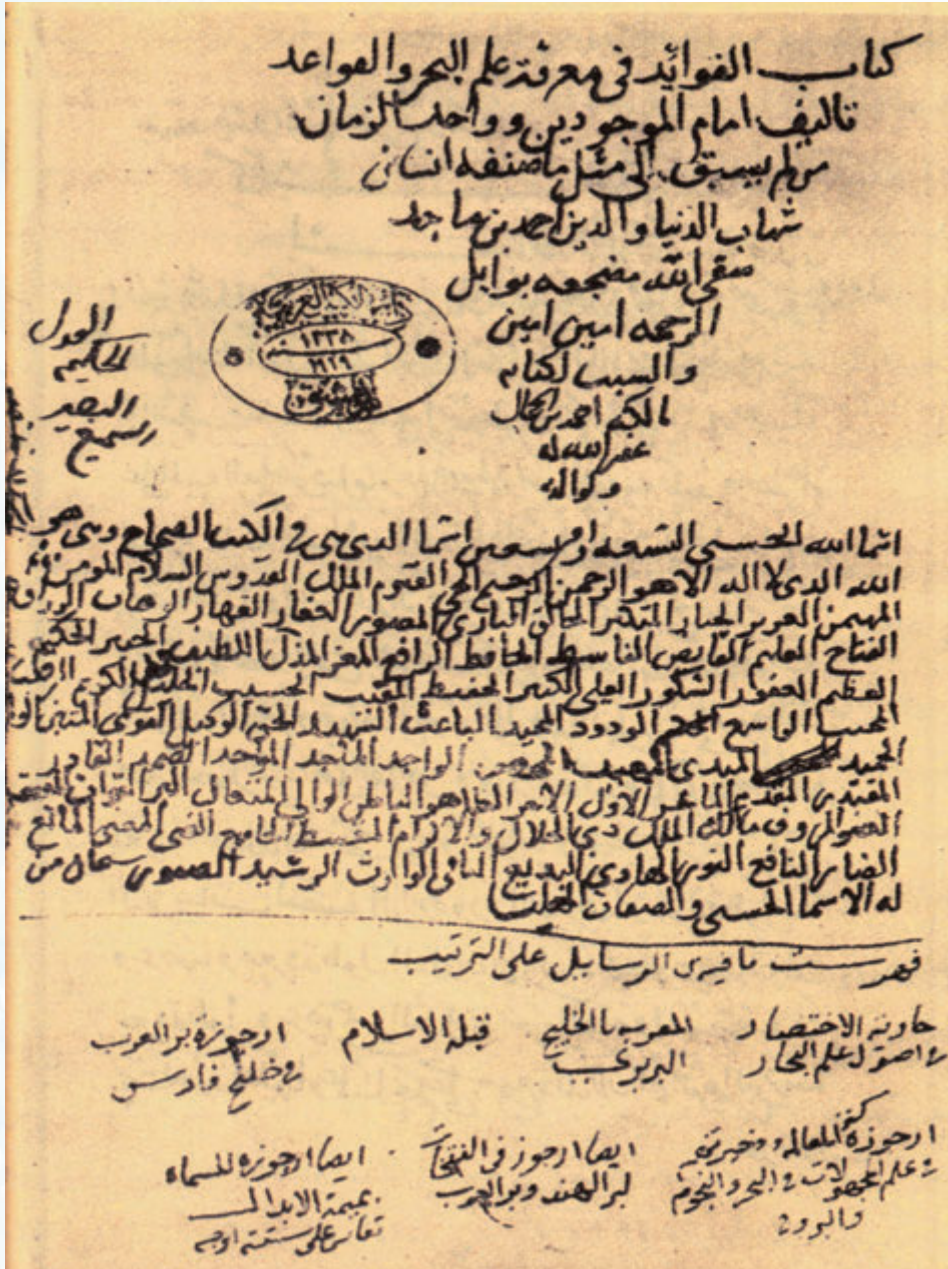 كتاب الفوائد في معرفة علم البحر والقواعد
تاليف امام الموجودين وواحد الزمان
من لم يسبق الى مثل ما صنفه انسان
شهاب الدنيا والدين احمد بن ماجد
سقى الله مضجعه بوابل
الرحمه امين امين
والسبب لكتابه
احمد بن
غفر الله له
ولوالديه
دار الكتب العربية
١٣٣٨
١٩١٩
دمشق
العدل
الحكيم
البصير
السميع
اسما الله الحسنى التسعه وتسعين اسما الذي هي في الكتب الصحاح وهي هو
الله الذي لا اله الا هو الرحمن الرحيم الحي القيوم الملك القدوس السلام المومن
المهيمن العزيز الجبار المتكبر الخالق الباري المصور الغفار القهار الوهاب الرزاق
الفتاح العليم القابض الباسط الخافظ الرافع المعز المذل اللطيف الخبير الحليم
العظيم الغفور الشكور العلي الكبير الحفيظ المقيت الحسيب الجليل الكريم الرقيب
المجيب الواسع الودود المجيد الباعث الشهيد الحق الوكيل القوي المتين الولي
الحميد المبدي المعيد الواجد الماجد الواحد الصمد القادر
المقتدر المقدم الماخر الاول الاخر الظاهر الباطن الوالي المتعال البر التواب المنتقم
العفو الروف مالك الملك ذي الجلال والاكرام المقسط الجامع الغني المغني المانع
الضار النافع النور الهادي البديع الباقي الوارث الرشيد الصبور سبحان من
له الاسما الحسنى والصفات
فهرست ما فيه من الرسايل على الترتيب
حاوية الاختصار المعرب بالخليج قبلة الاسلام ارجوزة بر العرب
في اصول علم البحار البربري في خليج فارس
ارجوزة كنز المعالمه وذخيرته ايضا ارجوزة في
في علم المجهولات في البحر والنجوم لبر الهند وبر العرب
والبروج
ايضا ارجوزة المسماه
بميمة الابدال